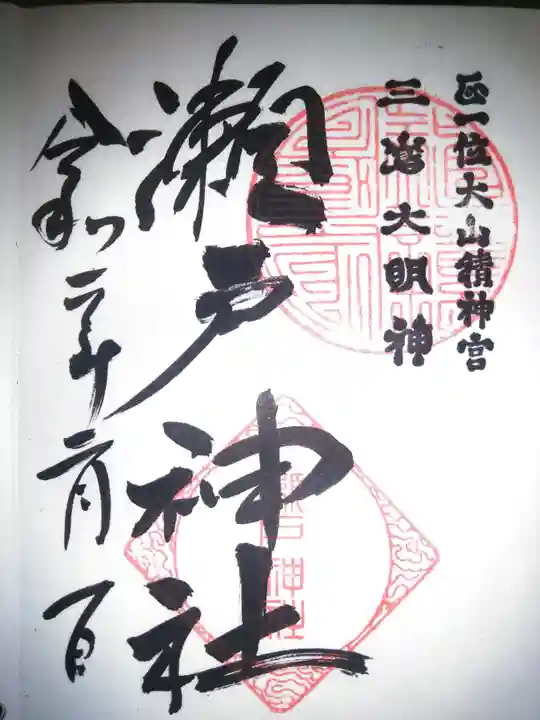 正一位大山積神宮
三嶌大明神
瀬戸神社
令和二年二月一日
瀬戸神社